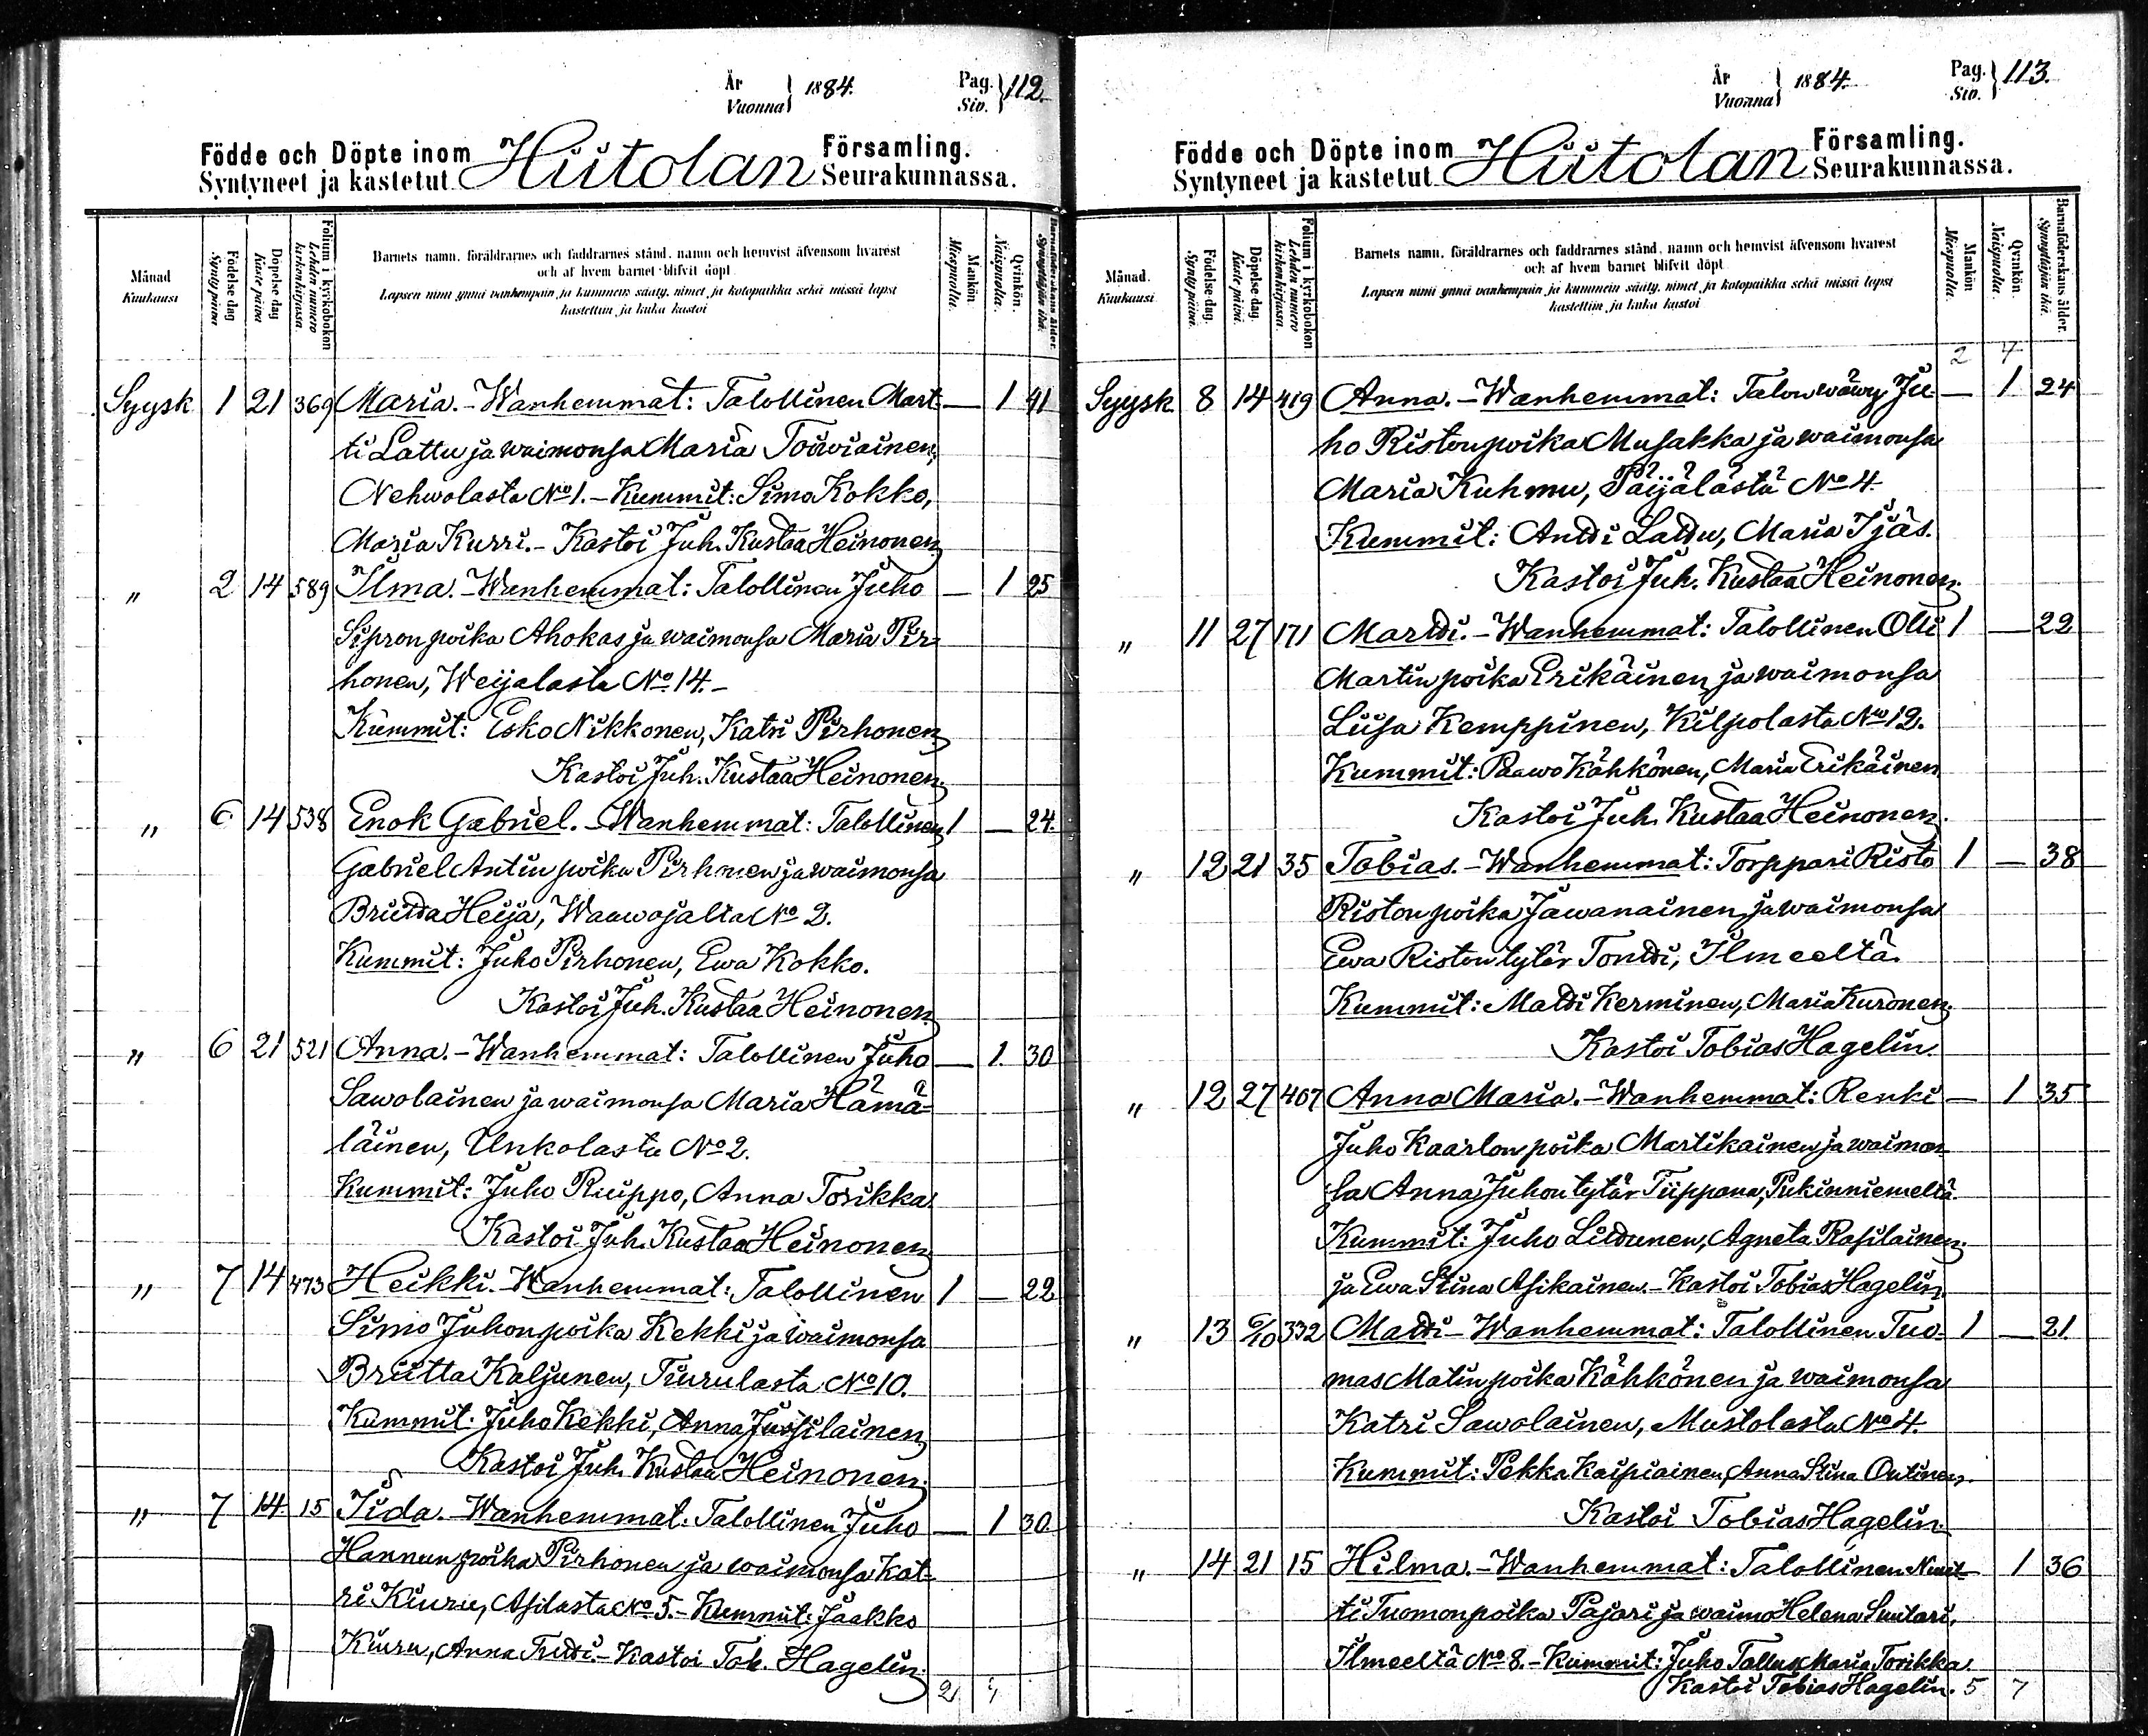 År
Vuonna } 1884.
Pag.
Siv. } 112.
Födde och Döpte inom Hiitolan Församling.
Syntyneet ja kastetut Seurakunnassa.
Månad
Kuukausi
Födelse dag
Synty päivä
Döpelse dag
Kaste päivä
Folium i kyrkoboken
Lehden numero kirkonkirjassa.
Barnets namn, föräldrarnes och faddrarnes stånd, namn och hemvist äfvensom hvarest
och af hvem barnet blifvit döpt
Lapsen nimi ynnä vanhempain ja kummein sääty, nimet ja kotopaikka sekä missä lapsi
kastettiin ja kuka kastoi
Mankön.
Miespuolia.
Qvinkön.
Naispuolia.
Barnaföderskans ålder.
Synnyttäjän ikä.
Syysk 1 21 369 Maria. - Wanhemmat: Talollinen Mart- — 1 41
ti Lattu ja waimonsa Maria Toiwiainen,
Nehwolasta No 1. - Kummit: Simo Kokko,
Maria Kurri. - Kastoi Juh. Kustaa Heinonen
" 2 14 589 Ilma. - Wanhemmat: Talollinen Juho — 1 25
Sipronpoika Ahokas ja waimonsa Maria Pir-
honen, Weijalasta No 14. -
Kummit: Esko Nikkonen, Katri Pirhonen
Kastoi Juh. Kustaa Heinonen.
" 6 14 538 Enok Gabriel. - Wanhemmat: Talollinen 1 — 24.
Gabriel Antinpoika Pirhonen ja waimonsa
Briitta Heijä, Waawojalta No 2.
Kummit: Juho Pirhonen, Ewa Kokko.
Kastoi Juh. Kustaa Heinonen
" 6 21 521 Anna. - Wanhemmat: Talollinen Juho — 1. 30
Sawolainen ja waimonsa Maria Hämä-
läinen, Unkolasta No 2.
Kummit: Juho Ruippo, Anna Torikka.
Kastoi Juh. Kustaa Heinonen
" 7 14 473 Heikki. - Wanhemmat: Talollinen 1 — 22
Simo Juhonpoika Kekki ja waimonsa
Briitta Kaljunen, Tiurulasta No 10.
Kummit: Juho Kekki, Anna Jussilainen
Kastoi Juh. Kustaa Heinonen.
" 7 14. 15 Iida. - Wanhemmat: Talollinen Juho — 1 30
Hannunpoika Pirhonen ja waimonsa Kat-
ri Kiuru, Asilasta No 5. - Kummit: Jaakko
Kiuru, Anna - Kastoi Tob. Hagelin.
2
År
Vuonna } 1884.
Pag.
Siv. } 113.
Födde och Döpte inom Hiitolan Församling.
Syntyneet ja kastetut Seurakunnassa.
Månad.
Kuukausi
Födelse dag.
Synty päivä.
Döpelse dag.
Kaste päivä.
Folium i kyrkoboken
Lehden numero kirkonkirjassa.
Barnets namn, föräldrarnes och faddrarnes stånd, namn och hemvist äfvensom hvarest
och af hvem barnet blifvit döpt
Lapsen nimi ynnä vanhempain ja kummein sääty, nimet ja kotopaikka sekä missä lapsi
kastettiin ja kuka kastoi
Mankön
Miespuolia.
Qvinkön.
Naispuolia.
Barnaföderskans ålder.
Synnyttäjän ikä.
2 4
Syysk. 8 14 419 Anna. - Wanhemmat: Talonwäwy Ju- — 1 24
ho Ristonpoika Musakka ja waimonsa
Maria Kuhmu, Päijälästä No 4.
Kummit: Antti Lattu, Maria Ijäs.
Kastoi Juh. Kustaa Heinonen.
" 11 27 171 Martti. - Wanhemmat: Talollinen Olli 1 — 22
Martinpoika Erikäinen ja waimonsa
Liisa Kemppinen, Kilpolasta No 12.
Kummit: Paawo Kähkönen, Maria Erikäinen
Kastoi Juh. Kustaa Heinonen.
" 12 21 35 Tobias. - Wanhemmat: Torppari Risto 1 — 38
Ristonpoika Jawanainen ja waimonsa
Ewa Ristontytär Tontti, Ilmeeltä.
Kummit: Matti Kerminen, Maria Kuronen.
Kastoi Tobias Hagelin.
" 12 27 407 Anna Maria. - Wanhemmat: Renki — 1 35
Juho Kaarlonpoika Martikainen ja waimon-
sa Anna Juhontytär Tiippana, Pukinniemeltä.
Kummit: Juho Littunen, Agneta Rasilainen.
ja Ewa Stina Asikainen. - Kastoi Tobias Hagelin.
" 13 6/10 332 Matti - Wanhemmat: Talollinen Tuo- 1 — 21
mas Matinpoika Kähkönen ja waimonsa
Katri Sawolainen, Mustolasta No 4.
Kummit: Pekka Kaipiainen, Anna Stina Outinen.
Kastoi Tobias Hagelin.
" 14 21 15 Hilma. - Wanhemmat: Talollinen Nuut- 1 36
ti Tuomonpoika Pajari ja waimo Helena Suutari,
Ilmeeltä No 8. - Kummit: Juho Tallus, Maria Torikka.
Kastoi Tobias Hagelin. 5 7